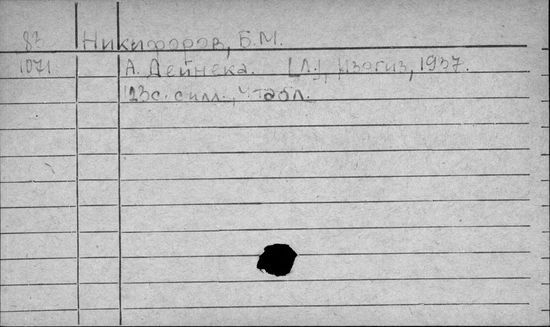 87 Никифоров, Б.М.
1071 А. Дейнека. [Л.], Изогиз, 1937.
123с. с илл., 4 табл.